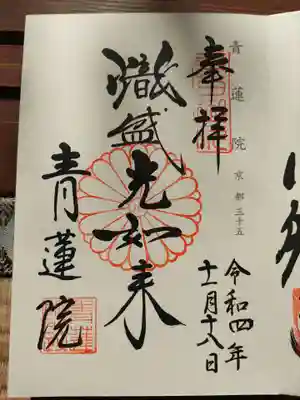 青蓮院 京都三十五
奉拝
令和四年
十一月十八日
熾盛光如来
青蓮院